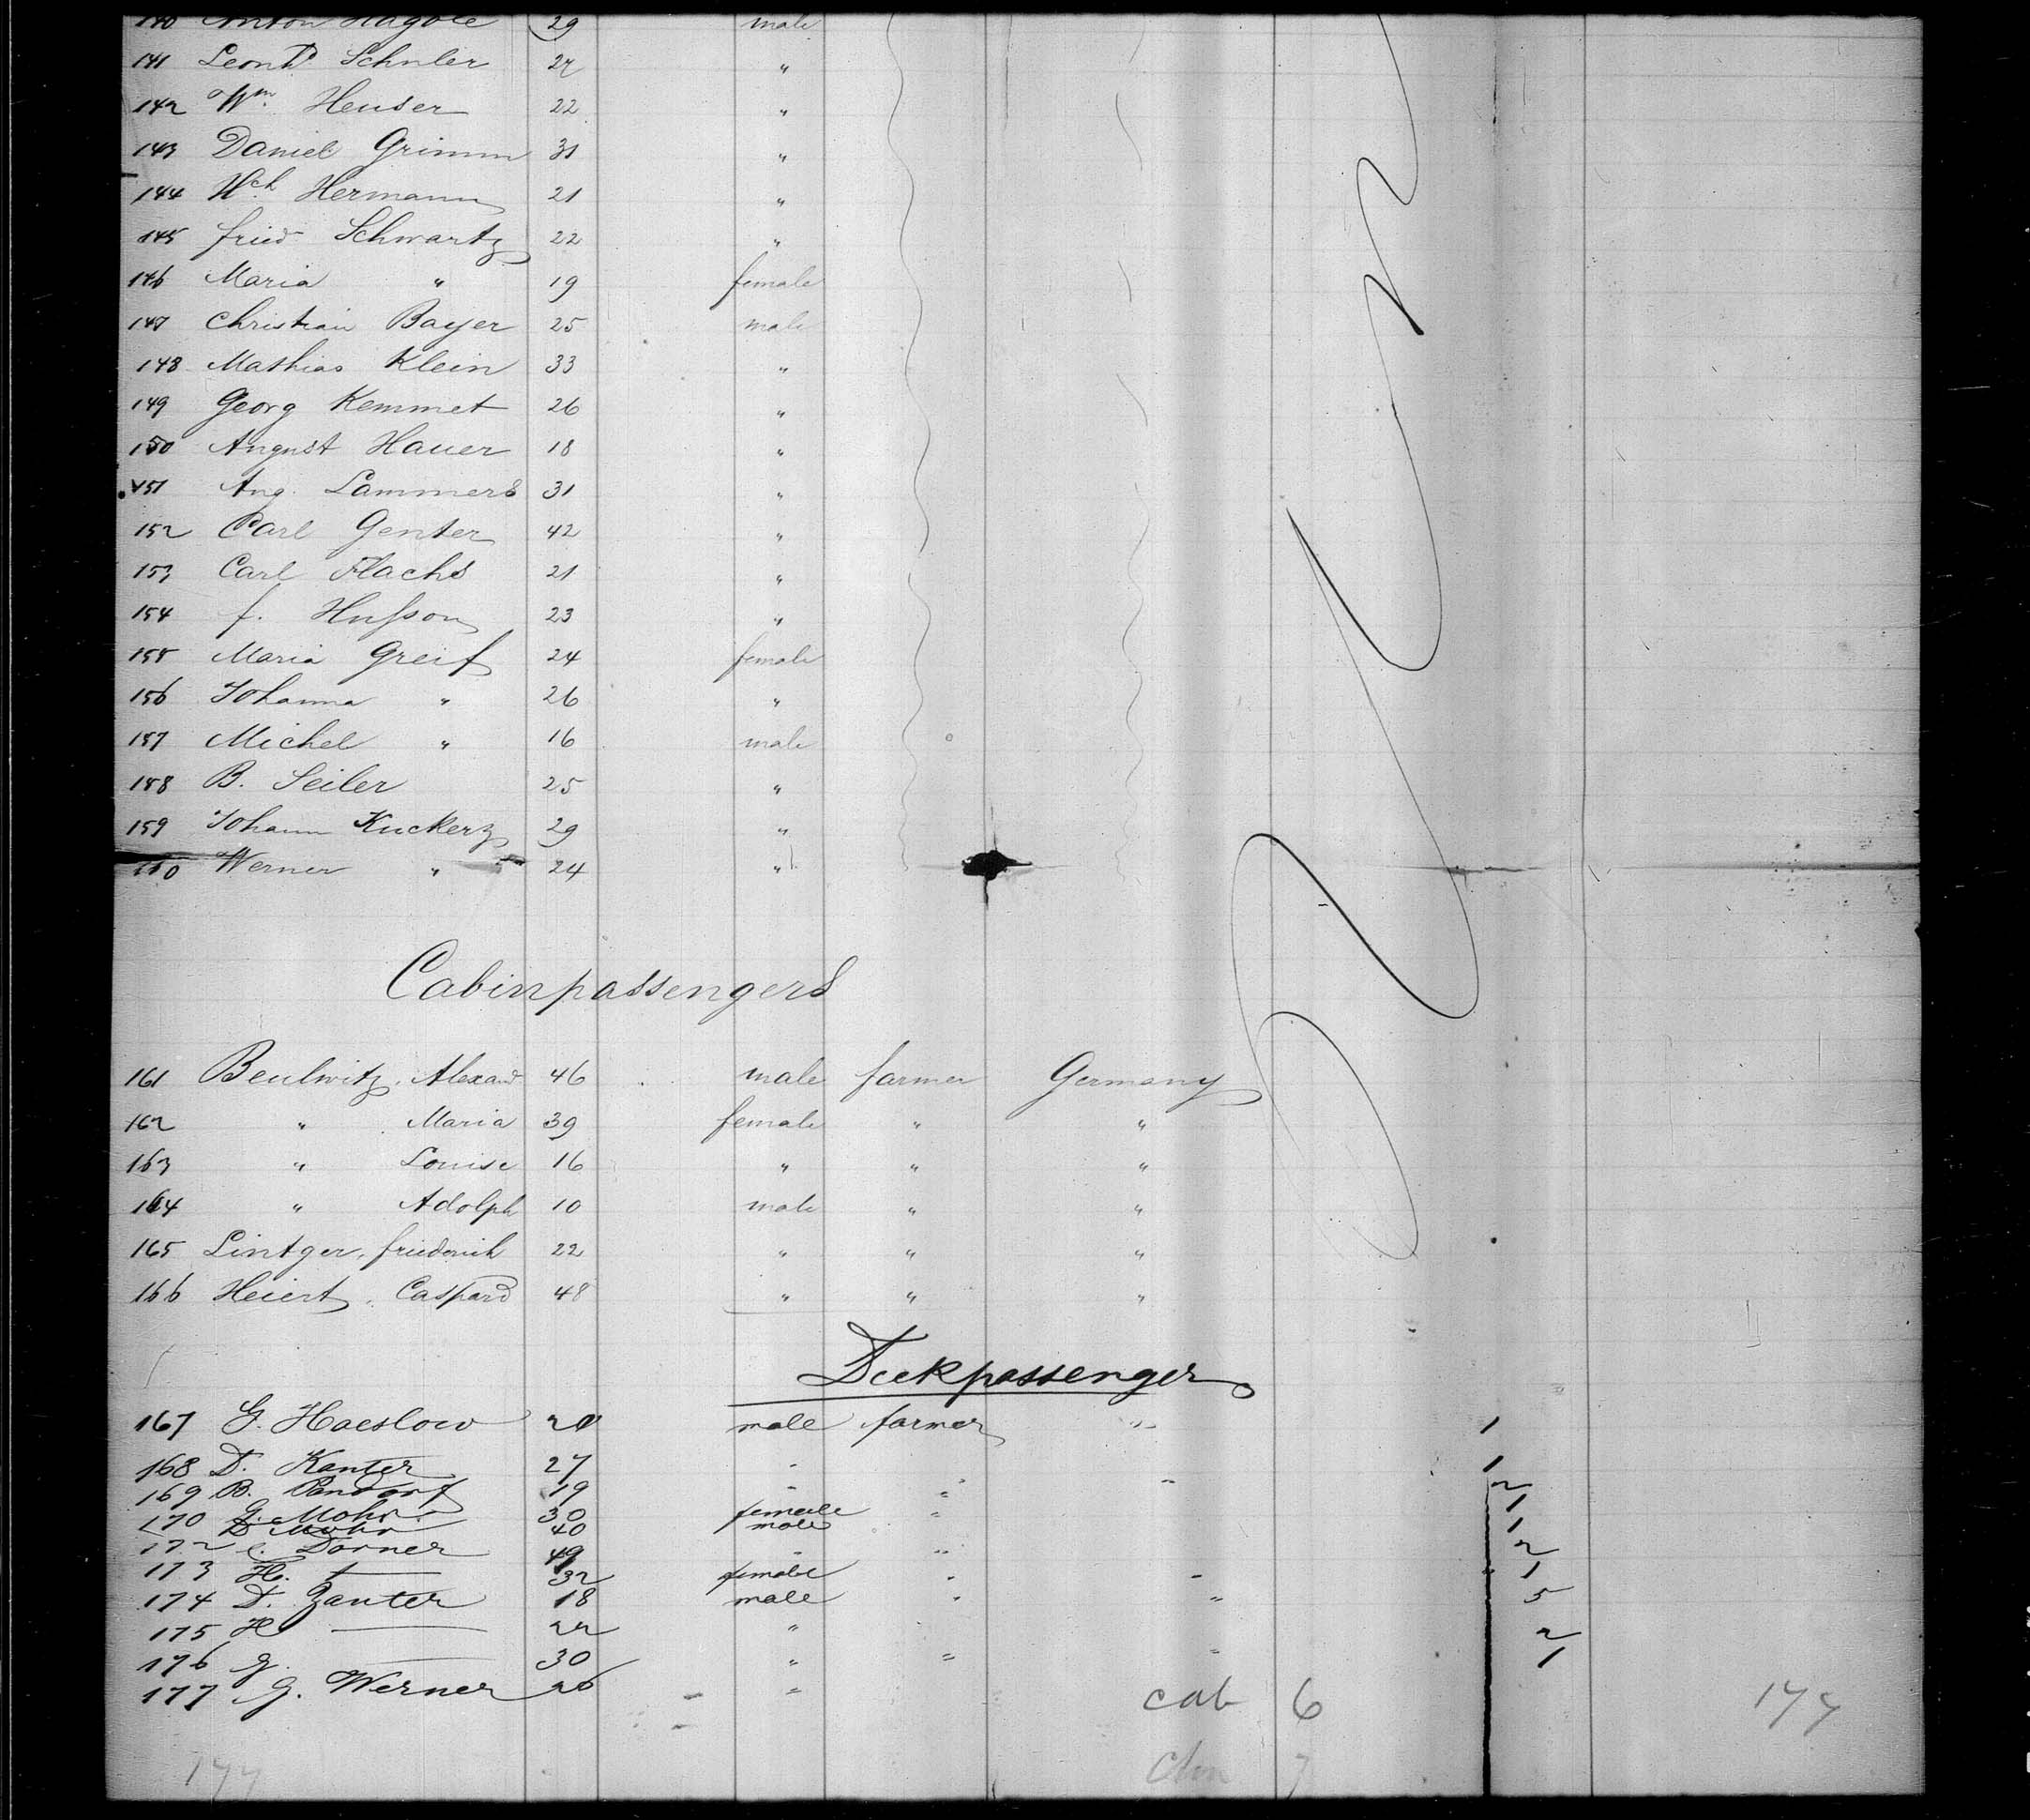 140 Anton 29 male
141 Leonh Schuler 27 "
142 Wm. Heuser 22 "
143 Daniel Grimm 31 "
144 Hch Hermann 21 "
145 Fried Schwartz 22 "
146 Maria " 19 female
147 Christian Bayer 25 male
148 Mathias Klein 33 "
149 Georg Kemmet 26 "
150 August Hauer 18 "
151 Aug. Lammers 31 "
152 Carl Genter 42 "
153 Carl Flachs 21 "
154 F. Hußon 23 "
155 Maria Greif 24 female
156 Johanna " 26 "
157 Michel " 16 male
158 B. Seiler 25 "
159 Johann Kuckerz 29 "
160 Werner " 24 "
Cabinpassengers
161 Beulwitz, Alexand 46 male farmer Germany
162 " Maria 39 female " "
163 " Louise 16 " " "
164 " Adolph 10 male " "
165 Lintger, Friederich 22 " " "
166 Heiert, Caspard 48 " " "
Deckpassenger
167 G. Haeslow 20 male farmer " 1
168 D. Kanter 27 " 1
169 B. Pandorf 19 " " " 2
170 G. Mohr 30 female " 1
D Mohr 40 male 1
172 C. Dorner 49 " " 2
173 H. — 32 female " " 1
174 D. Zanter 18 male " " 5
175 H — 22 " 2
176 G. — 30 " " " 1
177 G. Werner 26 "
cab 6
177
7
177